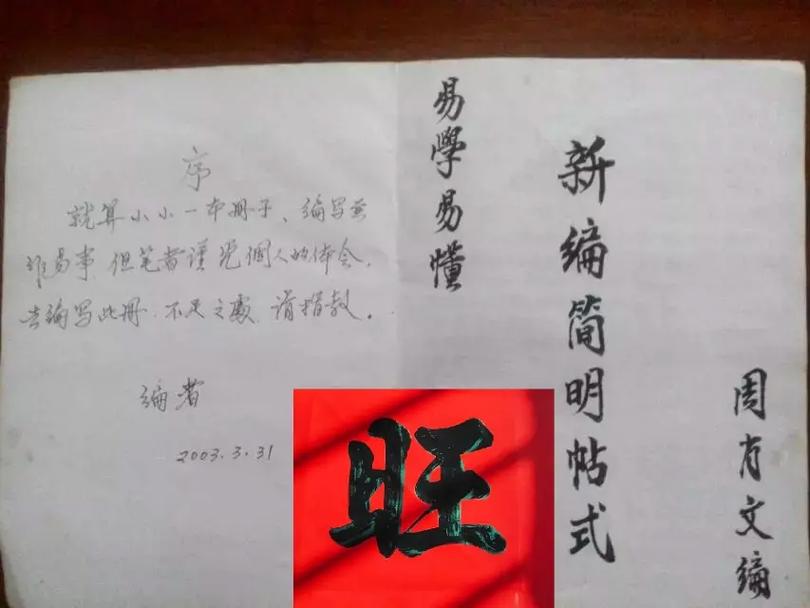 序
就算小小一本册子、编写並
非易事,但笔者谨凭個人的体会,
去编写此册.不足之處,请指教。
编者
2003.3.31
易學易懂
新编简明帖式
周肖文编
旺